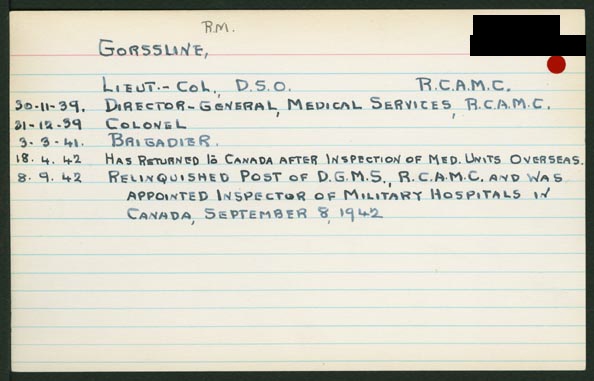 R.M.
GORSSLINE,
LIEUT.- COL., D.S.O. R.C.A.M.C.
30-11-39. DIRECTOR-GENERAL, MEDICAL SERVICES, R.C.A.M.C.
31-12-39 COLONEL
3-3-41. BRIGADIER.
18.4.42 HAS RETURNED TO CANADA AFTER INSPECTION OF MED. UNITS OVERSEAS.
8.9.42 RELINQUISHED POST OF D.G.M.S., R.C.A.M.C. AND WAS
APPOINTED INSPECTOR OF MILITARY HOSPITALS IN
CANADA, SEPTEMBER 8, 1942